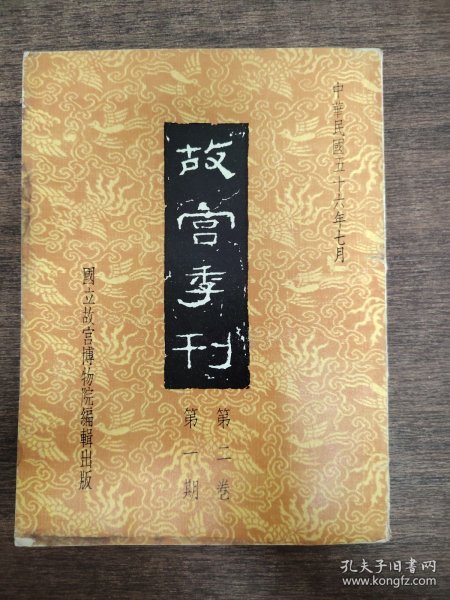 中華民國五十六年七月
故宮季刊
第二卷
第一期
國立故宮博物院編輯出版
孔夫子旧書网
www.kongfz.com